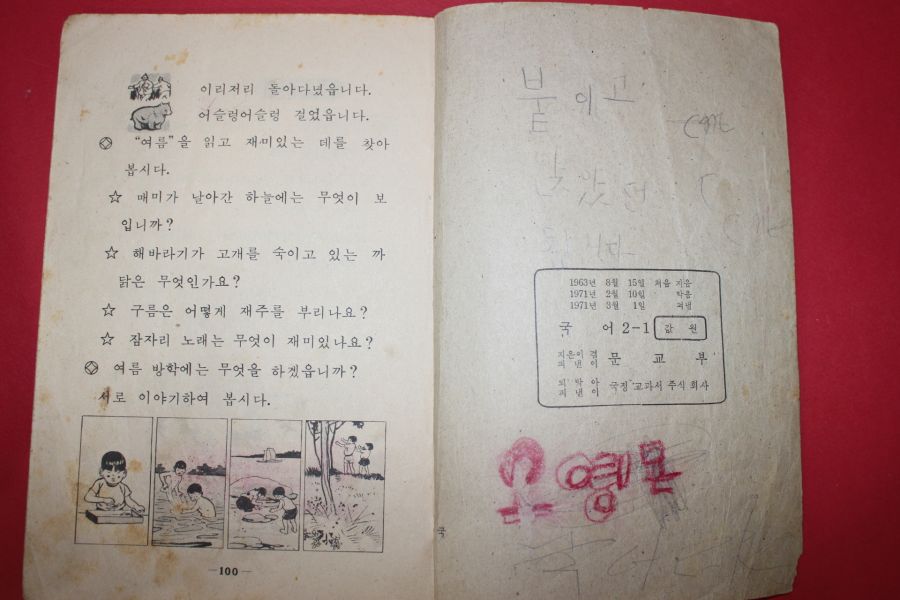 이리저리 돌아다녔읍니다.
어슬렁어슬렁 걸었읍니다.
"여름"을 읽고 재미있는 데를 찾아
봅시다.
☆ 매미가 날아간 하늘에는 무엇이 보
입니까?
☆ 해바라기가 고개를 숙이고 있는 까
닭은 무엇인가요?
☆ 구름은 어떻게 재주를 부리나요?
☆ 잠자리 노래는 무엇이 재미있나요?
여름 방학에는 무엇을 하겠읍니까?
서로 이야기하여 봅시다.
—100—
붙이고
1963년 8월 15일 처음 지음
1971년 2월 10일 박음
1971년 3월 1일 펴냄
국 어 2-1 값 원
지은이 겸 펴낸이 문 교 부
박아 펴낸이 국정 교과서 주식 회사
영
국